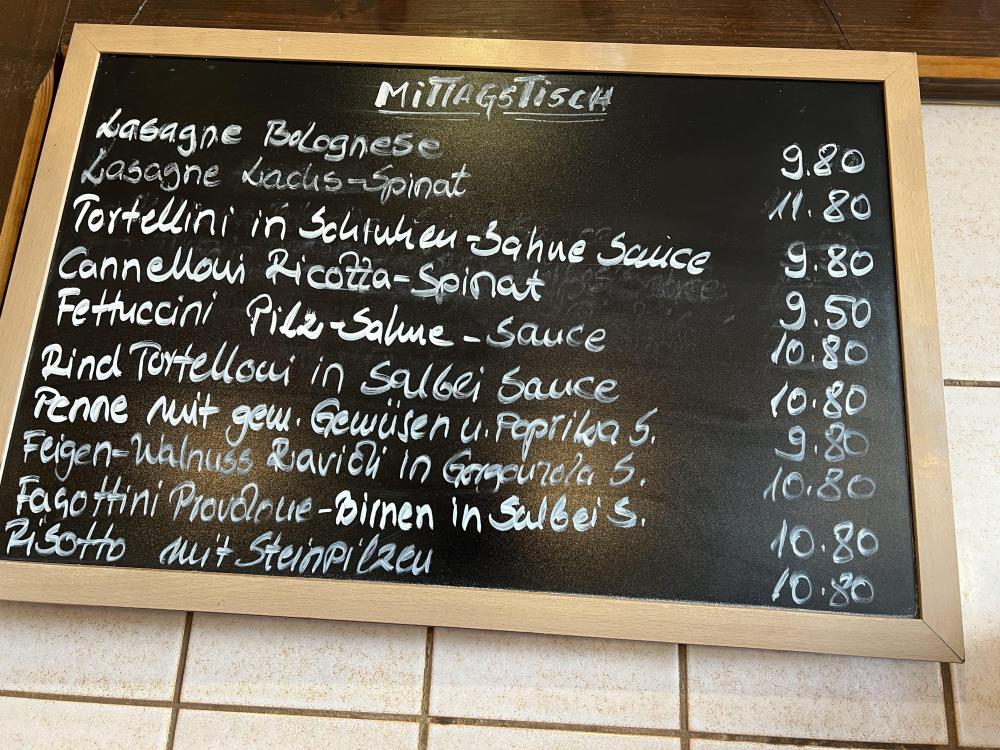 MITTAGSTISCH
Lasagne Bolognese 9.80
Lasagne Lachs-Spinat 11.80
Tortellini in Schinken-Sahne Sauce 9.80
Cannelloni Ricotta-Spinat 9.50
Fettuccini Pilz-Sahne-Sauce 10.80
Rind Tortelloni in Salbei Sauce 10.80
Penne mit gem. Gemüsen u. Paprika S. 9.80
Feigen-Walnuss Ravioli in Gorgonzola S. 10.80
Fagottini Provolone-Birnen in Salbei S. 10.80
Risotto mit Steinpilzen 10.80